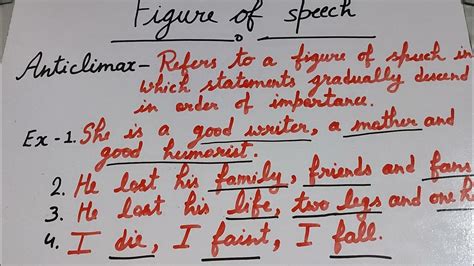 Figure of speech
Anticlimax - Refers to a figure of speech in
which statements gradually descend
in order of importance.
Ex - 1. She is a good writer, a mother and
good humorist.
2. He lost his family, friends and fans
3. He lost his life, two legs and one
4. I die, I faint, I fall.